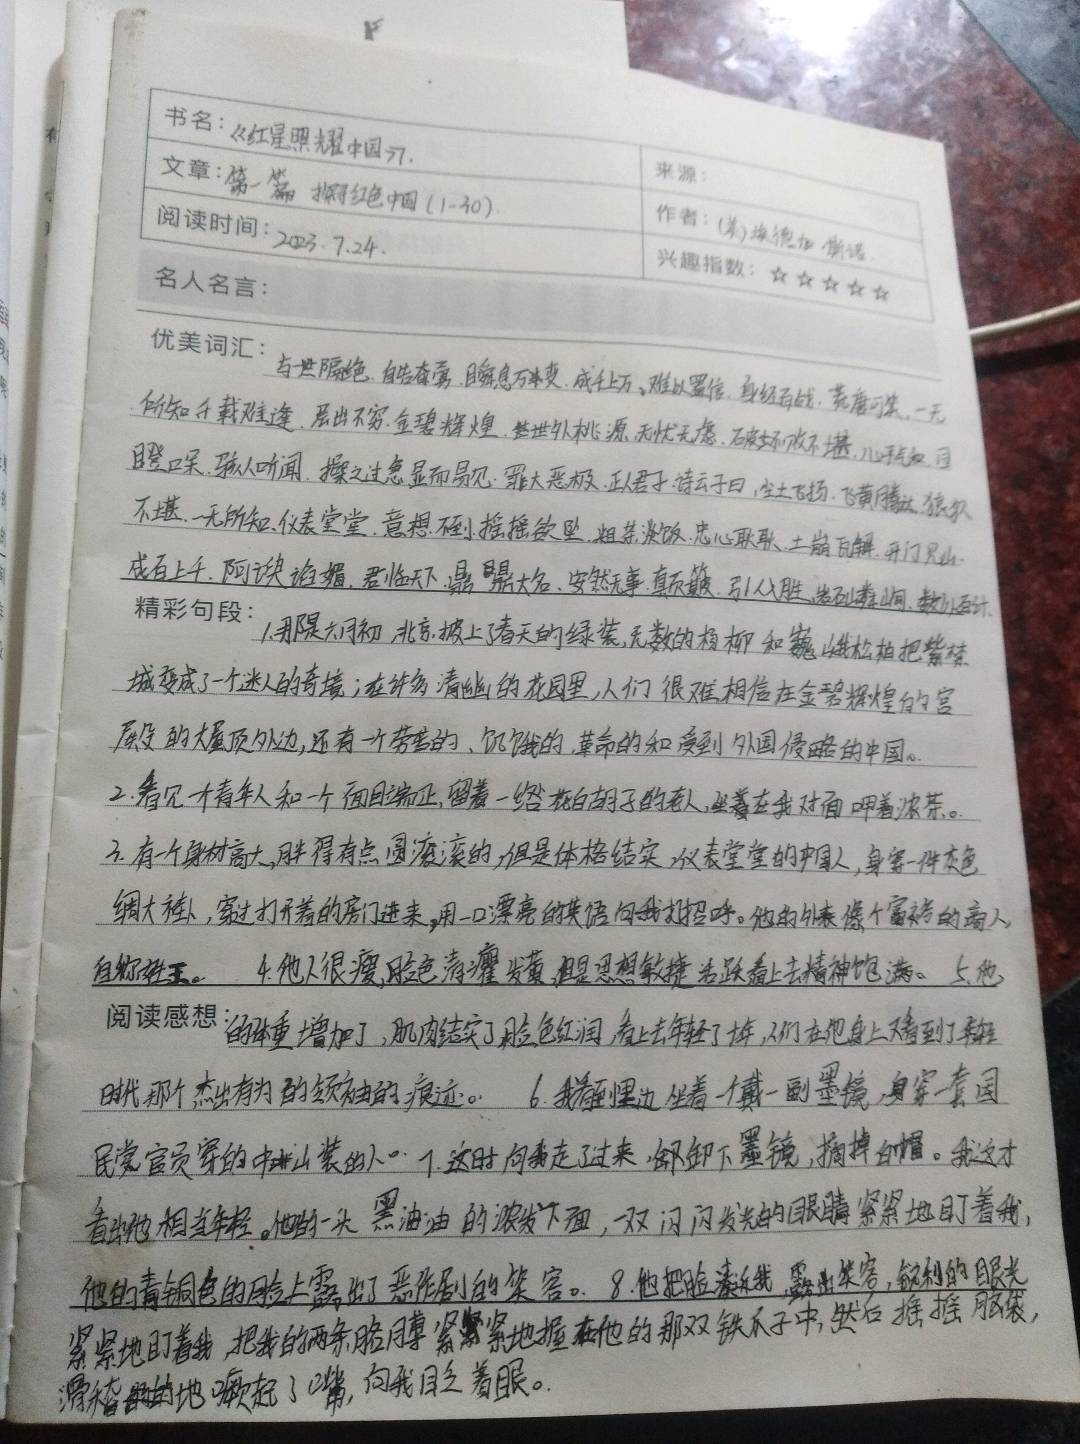 F
书名：《红星照耀中国》
来源：
文章：第一篇 探寻红色中国(1-30)
作者：(美)埃德加·斯诺
阅读时间：2023.7.24.
兴趣指数：☆☆☆☆☆
名人名言：
优美词汇：
与世隔绝、自告奋勇、瞬息万变、成千上万、难以置信、身经百战、荒唐可笑、一无
所知、千载难逢、层出不穷、金碧辉煌、世外桃源、无忧无虑、破坏不堪、心平气和、目
瞪口呆、骇人听闻、操之过急、显而易见、罪大恶极、正人君子、诗云子曰、尘土飞扬、飞黄腾达、狼狈
不堪、一无所知、仪表堂堂、意想不到、摇摇欲坠、粗茶淡饭、忠心耿耿、土崩瓦解、开门见山、
成百上千、阿谀谄媚、君临天下、鼎鼎大名、安然无事、真页、引人入胜、数以百计、
精彩句段：
1.那是六月初,北京披上了春天的绿装,无数的杨柳和巍峨松柏把紫禁
城变成了一个迷人的奇境；在许多清幽的花园里,人们很难相信在金碧辉煌的宫
殿的大屋顶外边,还有一个劳苦的、饥饿的、革命的和受到外国侵略的中国。
2.看见一个青年人和一个面目端正,留着一绺花白胡子的老人,坐着在我对面呷着浓茶。
3.有一个身材高大,胖得有点圆滚滚的,但是体格结实,仪表堂堂的中国人,身穿一件灰色
绸大褂,穿过打开着的房门进来,用一口漂亮的英语向我打招呼。他的外表像个富裕的商人,
自称姓王。 4.他人很瘦,脸色清癯发黄,但是思想敏捷活跃看上去精神饱满。 5.他
阅读感想：
的体重增加了,肌肉结实了,脸色红润,看上去年轻了十年,人们在他身上又看到了年轻
时代那个杰出有为的领袖的痕迹。 6.我看到里边坐着一个戴一副墨镜,身穿一套国
民党官员穿的中山装的人。 7.这时向我走了过来,卸下墨镜,摘掉白帽。我这才
看出他相当年轻。他的一头黑油油的浓发下面,一双闪闪发光的眼睛紧紧地盯着我,
他的青铜色的脸上露出了恶作剧的笑容。 8.他把脸凑近我,露出笑容,锐利的眼光
紧紧地盯着我,把我的两条胳膊紧紧地握在他的那双铁爪子中,然后摇摇脑袋,
滑稽的地噘起了嘴,向我目乏着眼。